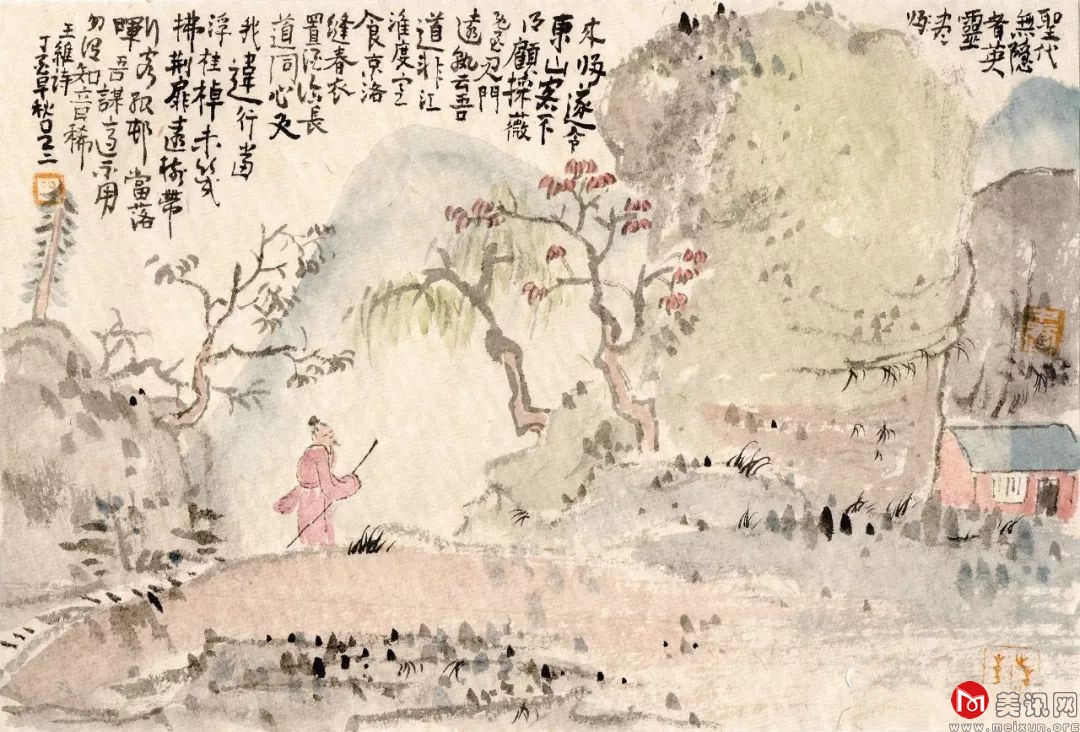 聖代
無隱
者英
靈
盡
来歸遂令
東山客不
得顧採薇
既至君門
遠孰云吾
道非江
淮度寒
食京洛
縫春衣
置酒臨長
道同心與
我違行當
浮桂棹未幾
拂荊扉遠樹帶
行客孤邨當落
暉吾謀適不用
勿謂知音稀
王維詩
丁亥草秋
美讯网
www.meixun.org